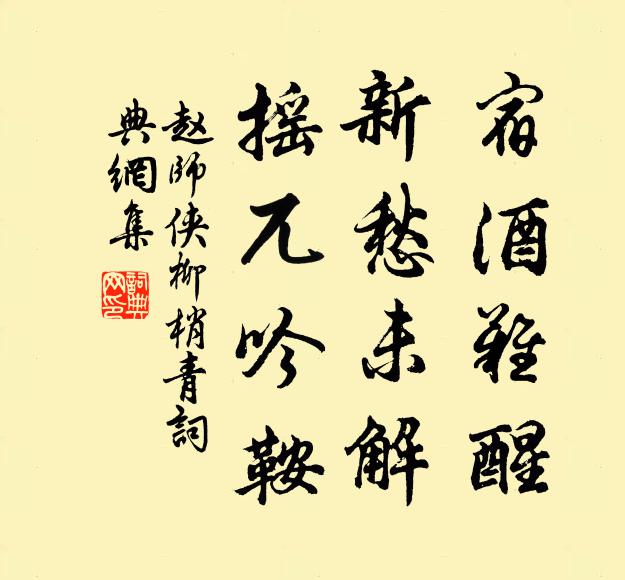 宿酒難醒
新愁未解
摇兀吟鞍
赵師侠柳梢青詞
典網集
詞典網印